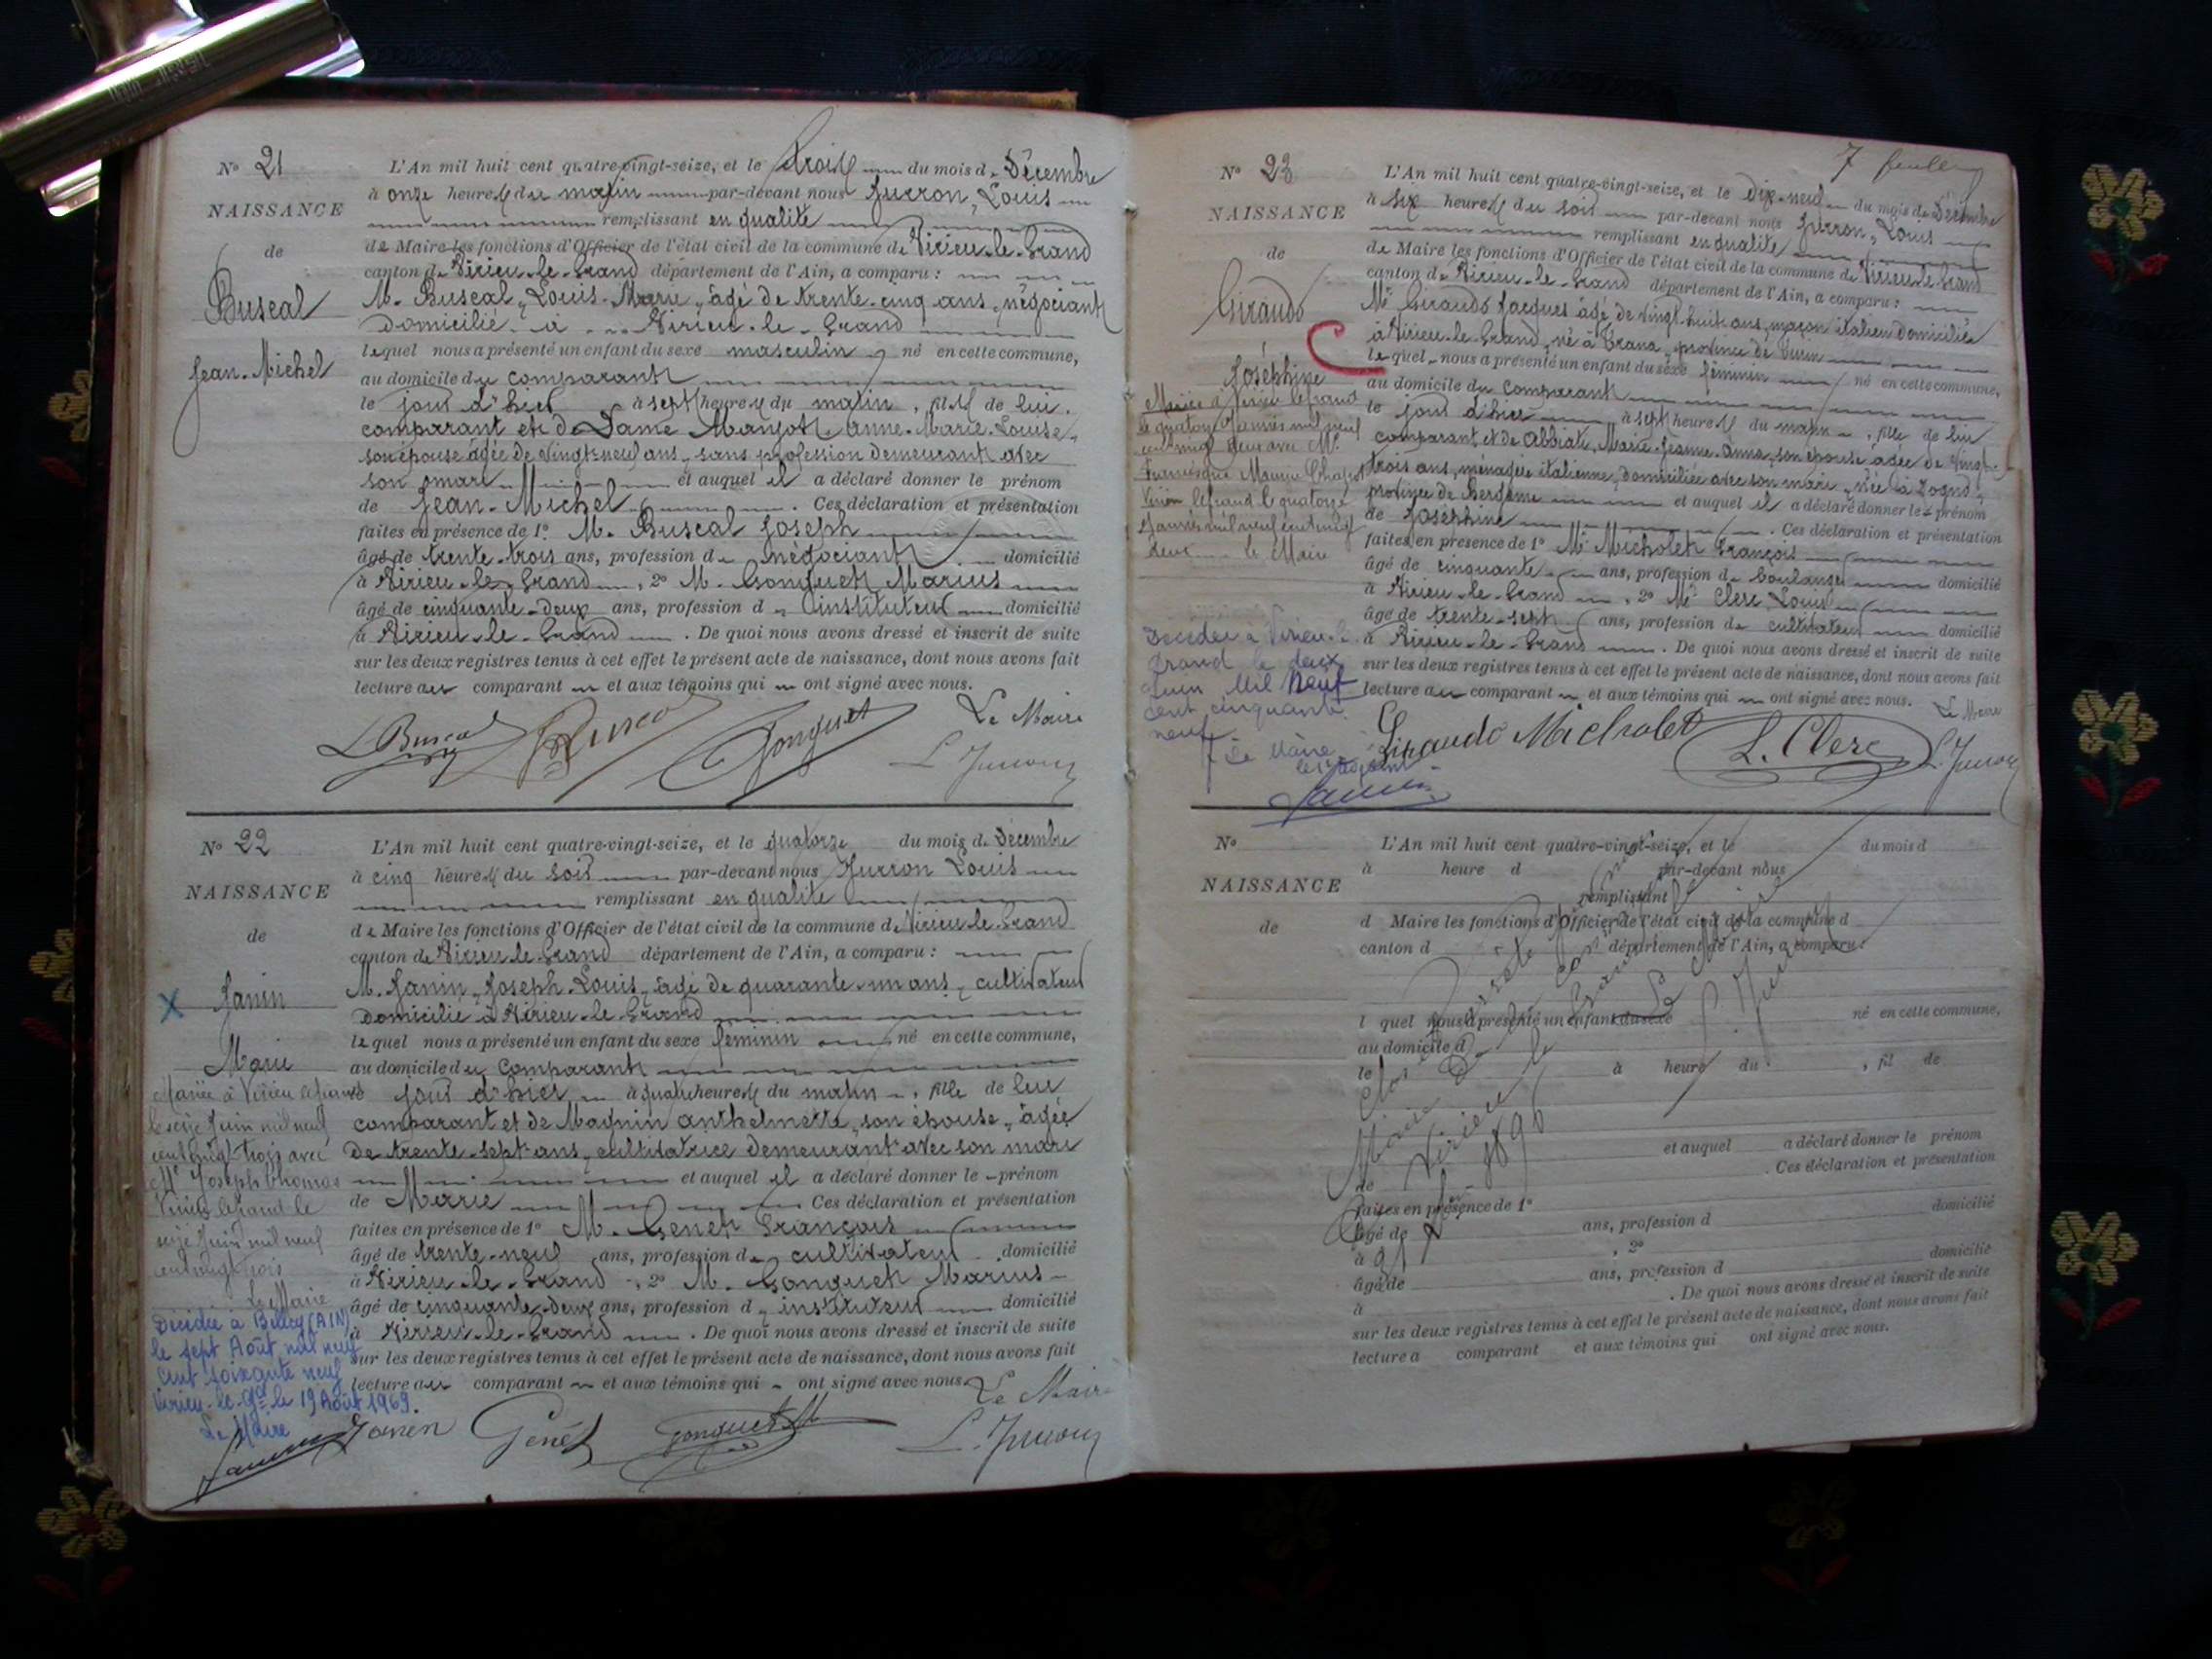 N° 21
NAISSANCE
de
Buscal
Jean-Michel
L'An mil huit cent quatre-vingt-seize, et le trois du mois de Décembre
à onze heures du matin par-devant nous Jurron, Louis
remplissant en qualité
de Maire les fonctions d'Officier de l'état civil de la commune de Virieu-le-Grand
canton de Virieu-le-Grand département de l'Ain, a comparu :
M. Buscal, Louis-Marie, âgé de trente-cinq ans, négociant
domicilié à Virieu-le-Grand
lequel nous a présenté un enfant du sexe masculin, né en cette commune,
au domicile du comparant
le jour d'hier à sept heures du matin, fils de lui
comparant et de Dame Manjot Anne-Marie-Louise,
son épouse âgée de vingt-neuf ans, sans profession demeurant avec
son mari et auquel il a déclaré donner le prénom
de Jean-Michel. Ces déclaration et présentation
faites en présence de 1° M. Buscal Joseph
âgé de trente-trois ans, profession de négociant domicilié
à Virieu-le-Grand, 2° M. Gonguet Marius
âgé de cinquante-deux ans, profession d'instituteur domicilié
à Virieu-le-Grand. De quoi nous avons dressé et inscrit de suite
sur les deux registres tenus à cet effet le présent acte de naissance, dont nous avons fait
lecture au comparant et aux témoins qui ont signé avec nous.
Le Maire
L Buscal J Buscal Gonguet L. Jurron
N° 22
NAISSANCE
de
Janin
Marie
L'An mil huit cent quatre-vingt-seize, et le quatorze du mois de Décembre
à cinq heures du soir par-devant nous Jurron Louis
remplissant en qualité
de Maire les fonctions d'Officier de l'état civil de la commune de Virieu-le-Grand
canton de Virieu-le-Grand département de l'Ain, a comparu :
M. Janin, Joseph-Louis, âgé de quarante-un ans, cultivateur
domicilié à Virieu-le-Grand
lequel nous a présenté un enfant du sexe féminin né en cette commune,
au domicile du comparant
jour d'hier à quatre heures du matin, fille de lui
comparant et de Magnin Anthelmette, son épouse, âgée
de trente-sept ans, cultivatrice demeurant avec son mari
et auquel il a déclaré donner le prénom
de Marie Ces déclaration et présentation
faites en présence de 1° M. Genet François
âgé de trente-neuf ans, profession de cultivateur domicilié
à Virieu-le-Grand, 2° M. Gonguet Marius
âgé de cinquante-deux ans, profession d'instituteur domicilié
à Virieu-le-Grand. De quoi nous avons dressé et inscrit de suite
sur les deux registres tenus à cet effet le présent acte de naissance, dont nous avons fait
lecture au comparant et aux témoins qui ont signé avec nous.
Le Maire
Janin Genet Gonguet M L. Jurron
Mariée à Virieu le grand
le seize Juin mil neuf
cent vingt trois avec
Mr Joseph Thomas
Virieu le grand le
seize Juin mil neuf
cent vingt trois
Le Maire
Décédée à Belley (AIN)
le sept Août mil neuf
cent soixante neuf
Virieu-le-Gd le 19 Août 1969.
Le Maire
7 feuille
N° 23
NAISSANCE
de
Giraudo
Joséphine
L'An mil huit cent quatre-vingt-seize, et le Dix-neuf du mois de Décembre
à six heures du soir par-devant nous Jurron, Louis
remplissant en qualité
de Maire les fonctions d'Officier de l'état civil de la commune de Virieu-le-Grand
canton de Virieu-le-Grand département de l'Ain, a comparu :
Mr Giraudo Jacques âgé de vingt-huit ans, maçon italien domicilié
à Virieu-le-Grand, né à Trana, province de Turin
lequel nous a présenté un enfant du sexe féminin né en cette commune,
au domicile du comparant
le jour d'hier à sept heures du matin, fille de lui
comparant et de Abbiati, Marie-Jeanne-Anna, son épouse âgée de vingt-
trois ans, ménagère italienne, domiciliée avec son mari, née à Zogno,
province de Bergame et auquel il a déclaré donner le prénom
de Joséphine. Ces déclaration et présentation
faites en présence de 1° Mr Micholet François
âgé de cinquante ans, profession de boulanger domicilié
à Virieu-le-Grand, 2° Mr Clerc Louis
âgé de trente-sept ans, profession de cultivateur domicilié
à Virieu-le-Grand. De quoi nous avons dressé et inscrit de suite
sur les deux registres tenus à cet effet le présent acte de naissance, dont nous avons fait
lecture au comparant et aux témoins qui ont signé avec nous.
Le Maire
Giraudo Micholet L. Clerc L. Jurron
Mariée à Virieu le grand
le quatorze Janvier mil neuf
cent vingt deux avec Mr
Francisque Maurice
Virieu le grand le quatorze
Janvier mil neuf cent vingt
deux le Maire
Décédée à Virieu-le-
Grand le deux
Juin Mil Neuf
cent cinquante
neuf
Le Maire
N°
NAISSANCE
de
L'An mil huit cent quatre-vingt-seize, et le du mois d
à heure d par-devant nous
remplissant
d Maire les fonctions d'Officier de l'état civil de la commune d
canton d département de l'Ain, a comparu :
l quel nous a présenté un enfant du sexe né en cette commune,
au domicile d
le à heure du , fil de
et auquel a déclaré donner le prénom
de . Ces déclaration et présentation
faites en présence de 1°
âgé de ans, profession d domicilié
à , 2°
âgé de ans, profession d domicilié
à . De quoi nous avons dressé et inscrit de suite
sur les deux registres tenus à cet effet le présent acte de naissance, dont nous avons fait
lecture a comparant et aux témoins qui ont signé avec nous.
Clos
Mairie de
Virieu le Grand
1896
Le Maire
L. Jurron